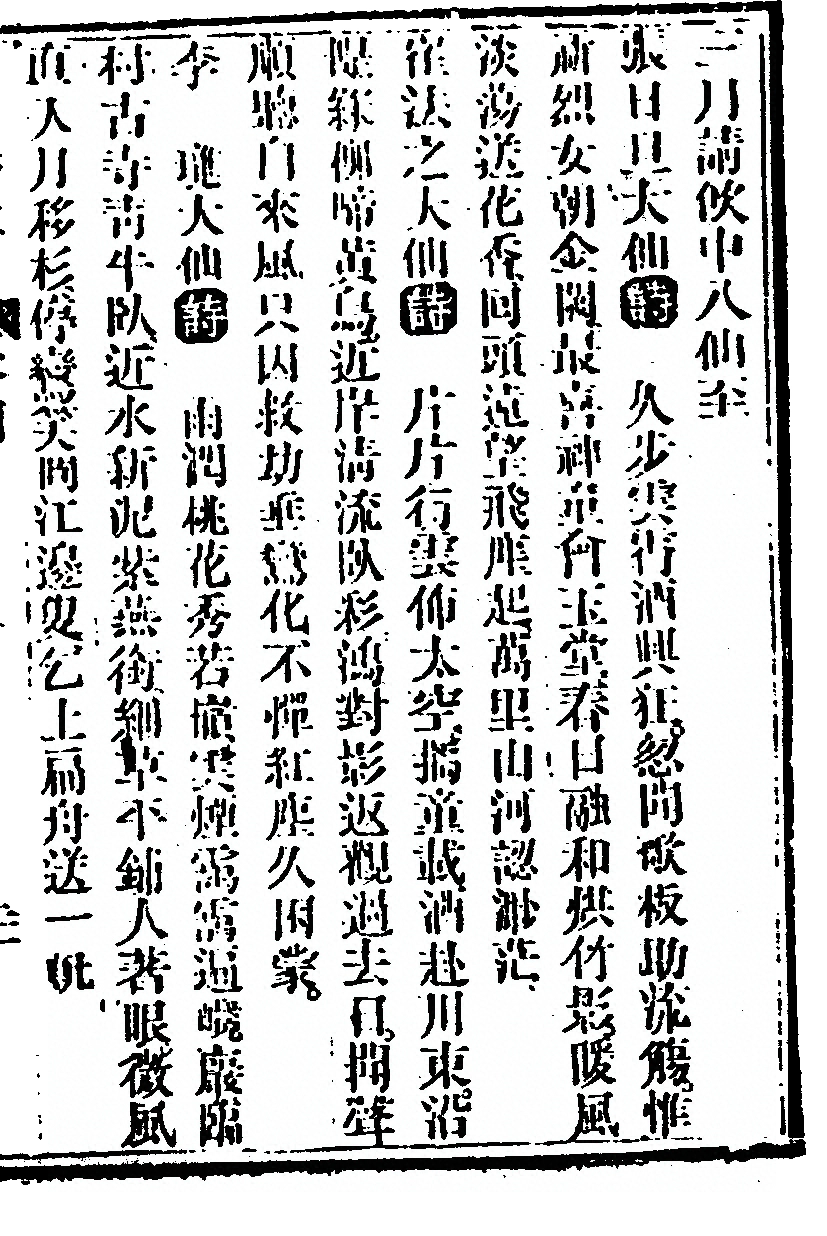 三月請飲中八仙至
張日旦大仙詩 久步雲衢酒興狂忽聞歌板助流觴惟
斯烈女朝金闕最喜神童會玉堂春日融和烘竹影暖風
淡蕩送花香回頭遠望飛塵起萬里山河認渺茫
崔法之大仙詩 片片行雲佈太空攜童載酒赴川東沿
堤綠柳啼黃鳥近岸清流臥彩鴻對影返觀過去日聞聲
順聽自來風只因救劫垂鸞化不憚紅塵久困蒙
李 大仙詩 雨潤桃花秀若嬌雲煙靄靄逼巖臨
村古寺青牛臥近水新泥紫燕銜細草平鋪人著眼微風
直入月移杉停鸞笑問江邊叟乞上扁舟送一帆